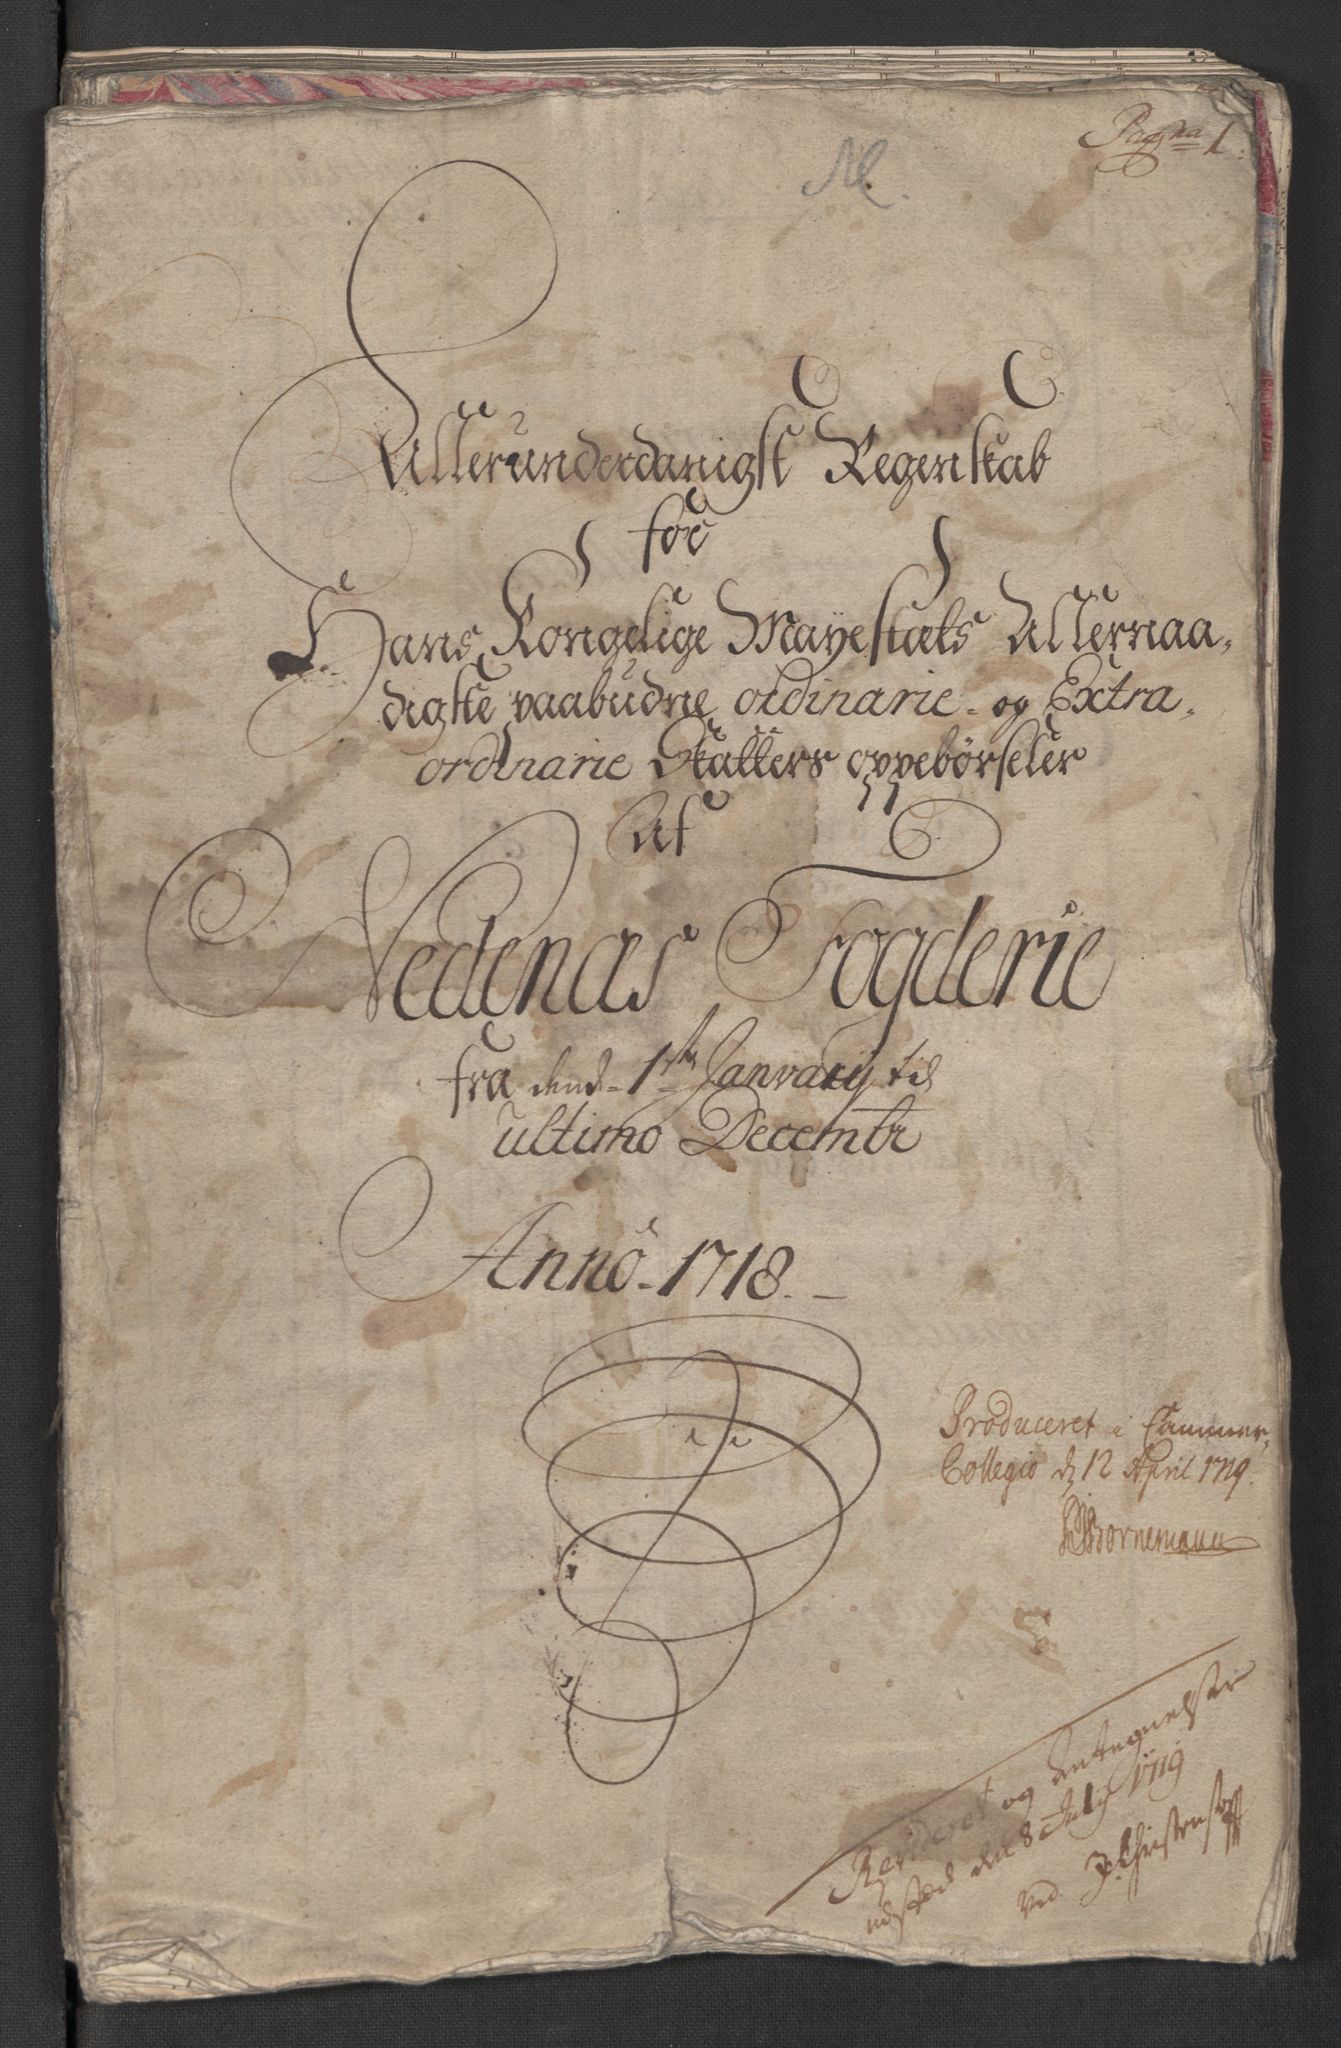 Pagina 1.
Allerunderdanigst Regenskab
for
Hans Kongelige Mayestæts Allernaa-
digste paabudne ordinarie- og Extra-
ordinarie Skatters oppebørseler
Af
Nedenæs Fogderie
fra dend 1ste January til
ultimo Decembr
Anno 1718.
Produceret i Cammer-
Collegio d 12 April 1719.
Bornemann
Revideret og Antegnelser
udsted den 8 July 1719
ved J Christensen